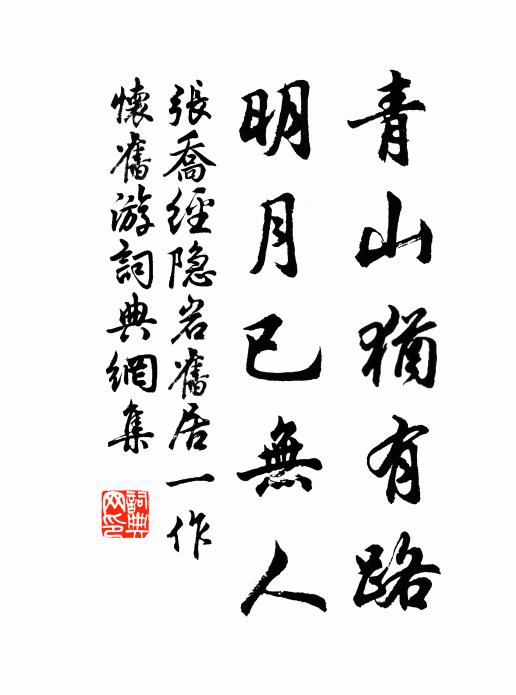 青山猶有路
明月已無人
張喬經隐岩舊居一作
懷舊游詞典網集
詞典网印